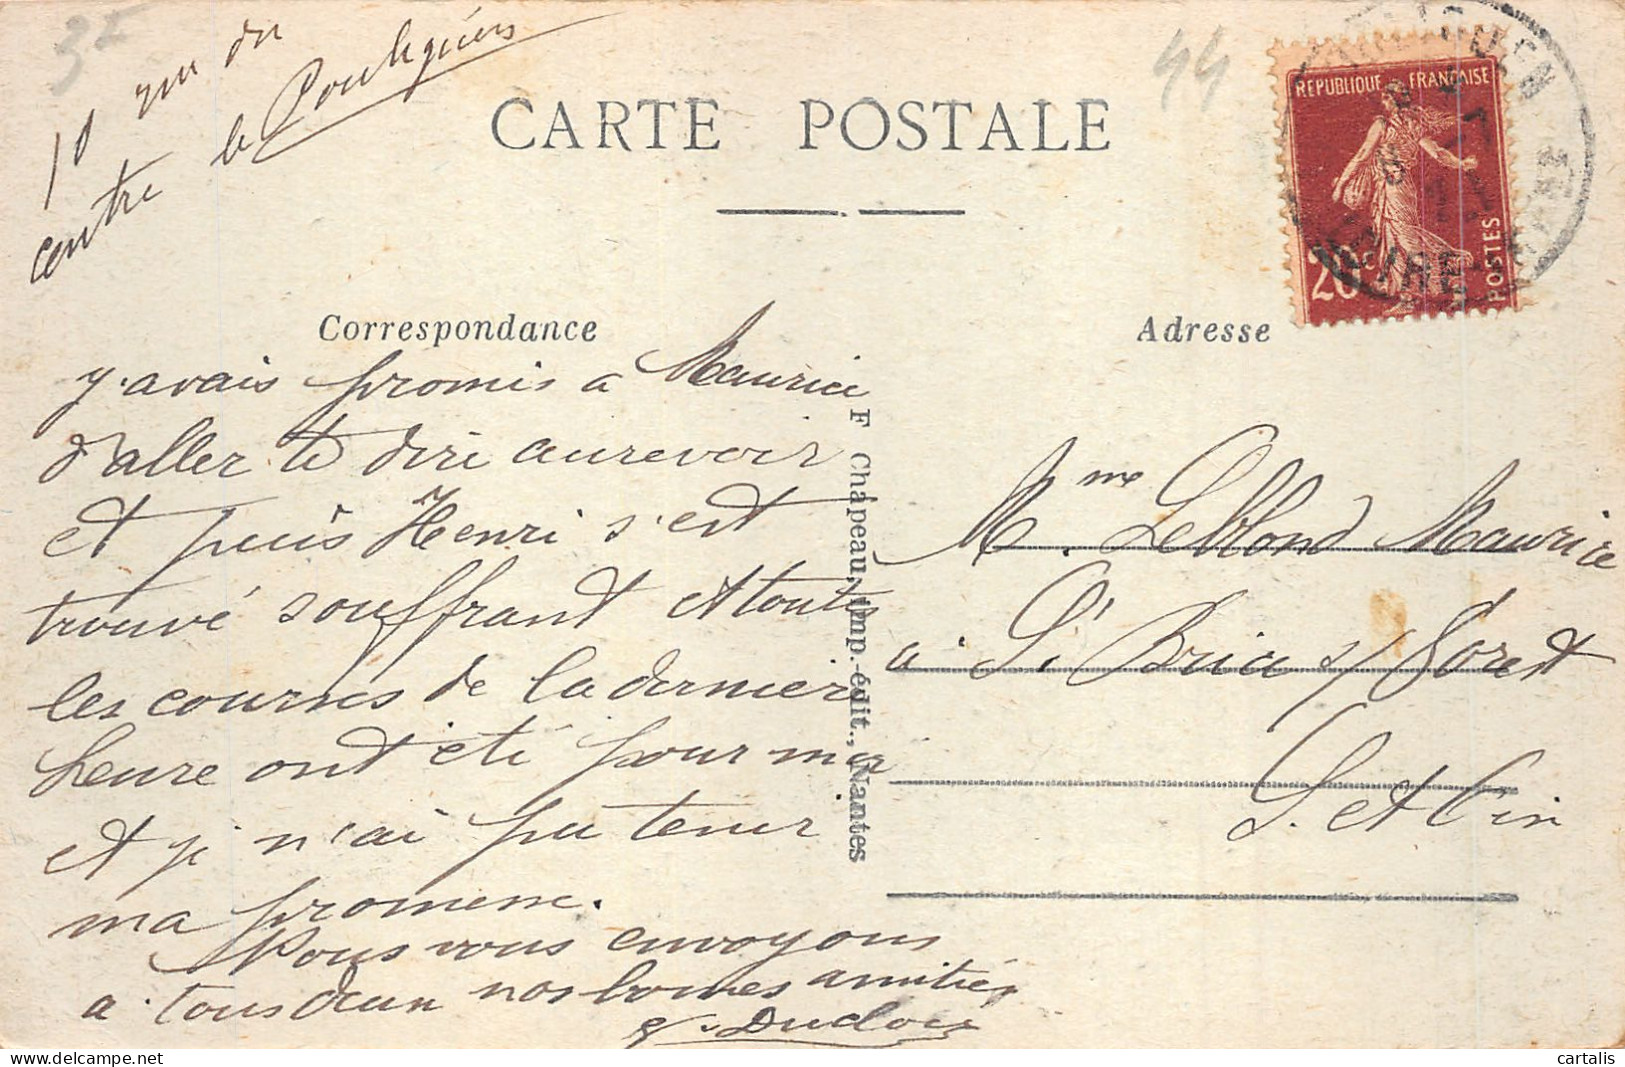 3F
44
10 rue du
centre le Pouliguen
CARTE POSTALE
REPUBLIQUE FRANÇAISE
20c
POSTES
LOIRE
Correspondance
Adresse
j'avais promis a Maurice
d'aller te dire aurevoir
et puis Henri s'est
trouvé souffrant et toutes
les courses de la dernier
heure ont été pour moi
et je n'ai pu tenir
ma promesse.
Nous vous envoyons
a tous deux nos bonnes amitiés
Duclos
F Chapeau, Imp.-édit., Nantes
Mme Leblond Maurice
à St Brice s/ Foret
S. et Oise
cartalis